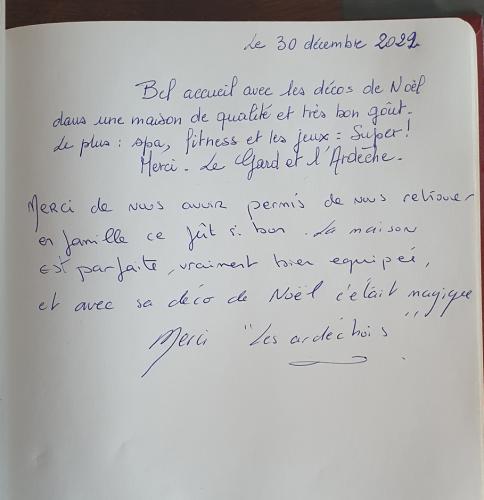 Le 30 décembre 2022
Bel accueil avec les décos de Noël
dans une maison de qualité et très bon goût.
Le plus : spa, fitness et les jeux = Super !
Merci. Le Gard et l'Ardèche.
Merci de nous avoir permis de nous retrouver
en famille ce fût si bon. La maison
est parfaite, vraiment bien equipée,
et avec sa déco de Noël c'était magique
Merci "Les ardéchois".